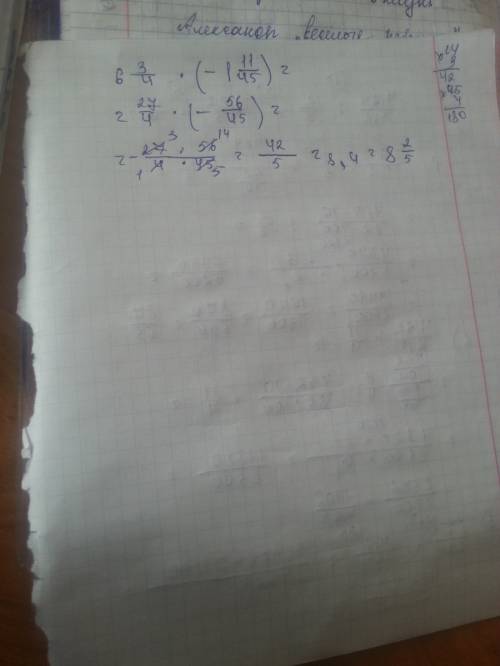 Александр
6 3/4 · (- 1 11/45) =
= 27/4 · (- 56/45) =
= - 27 3 · 56 14 / 1 4 · 45 5 = 42/5 = 8,4 = 8 2/5
14
3
42
45
4
180